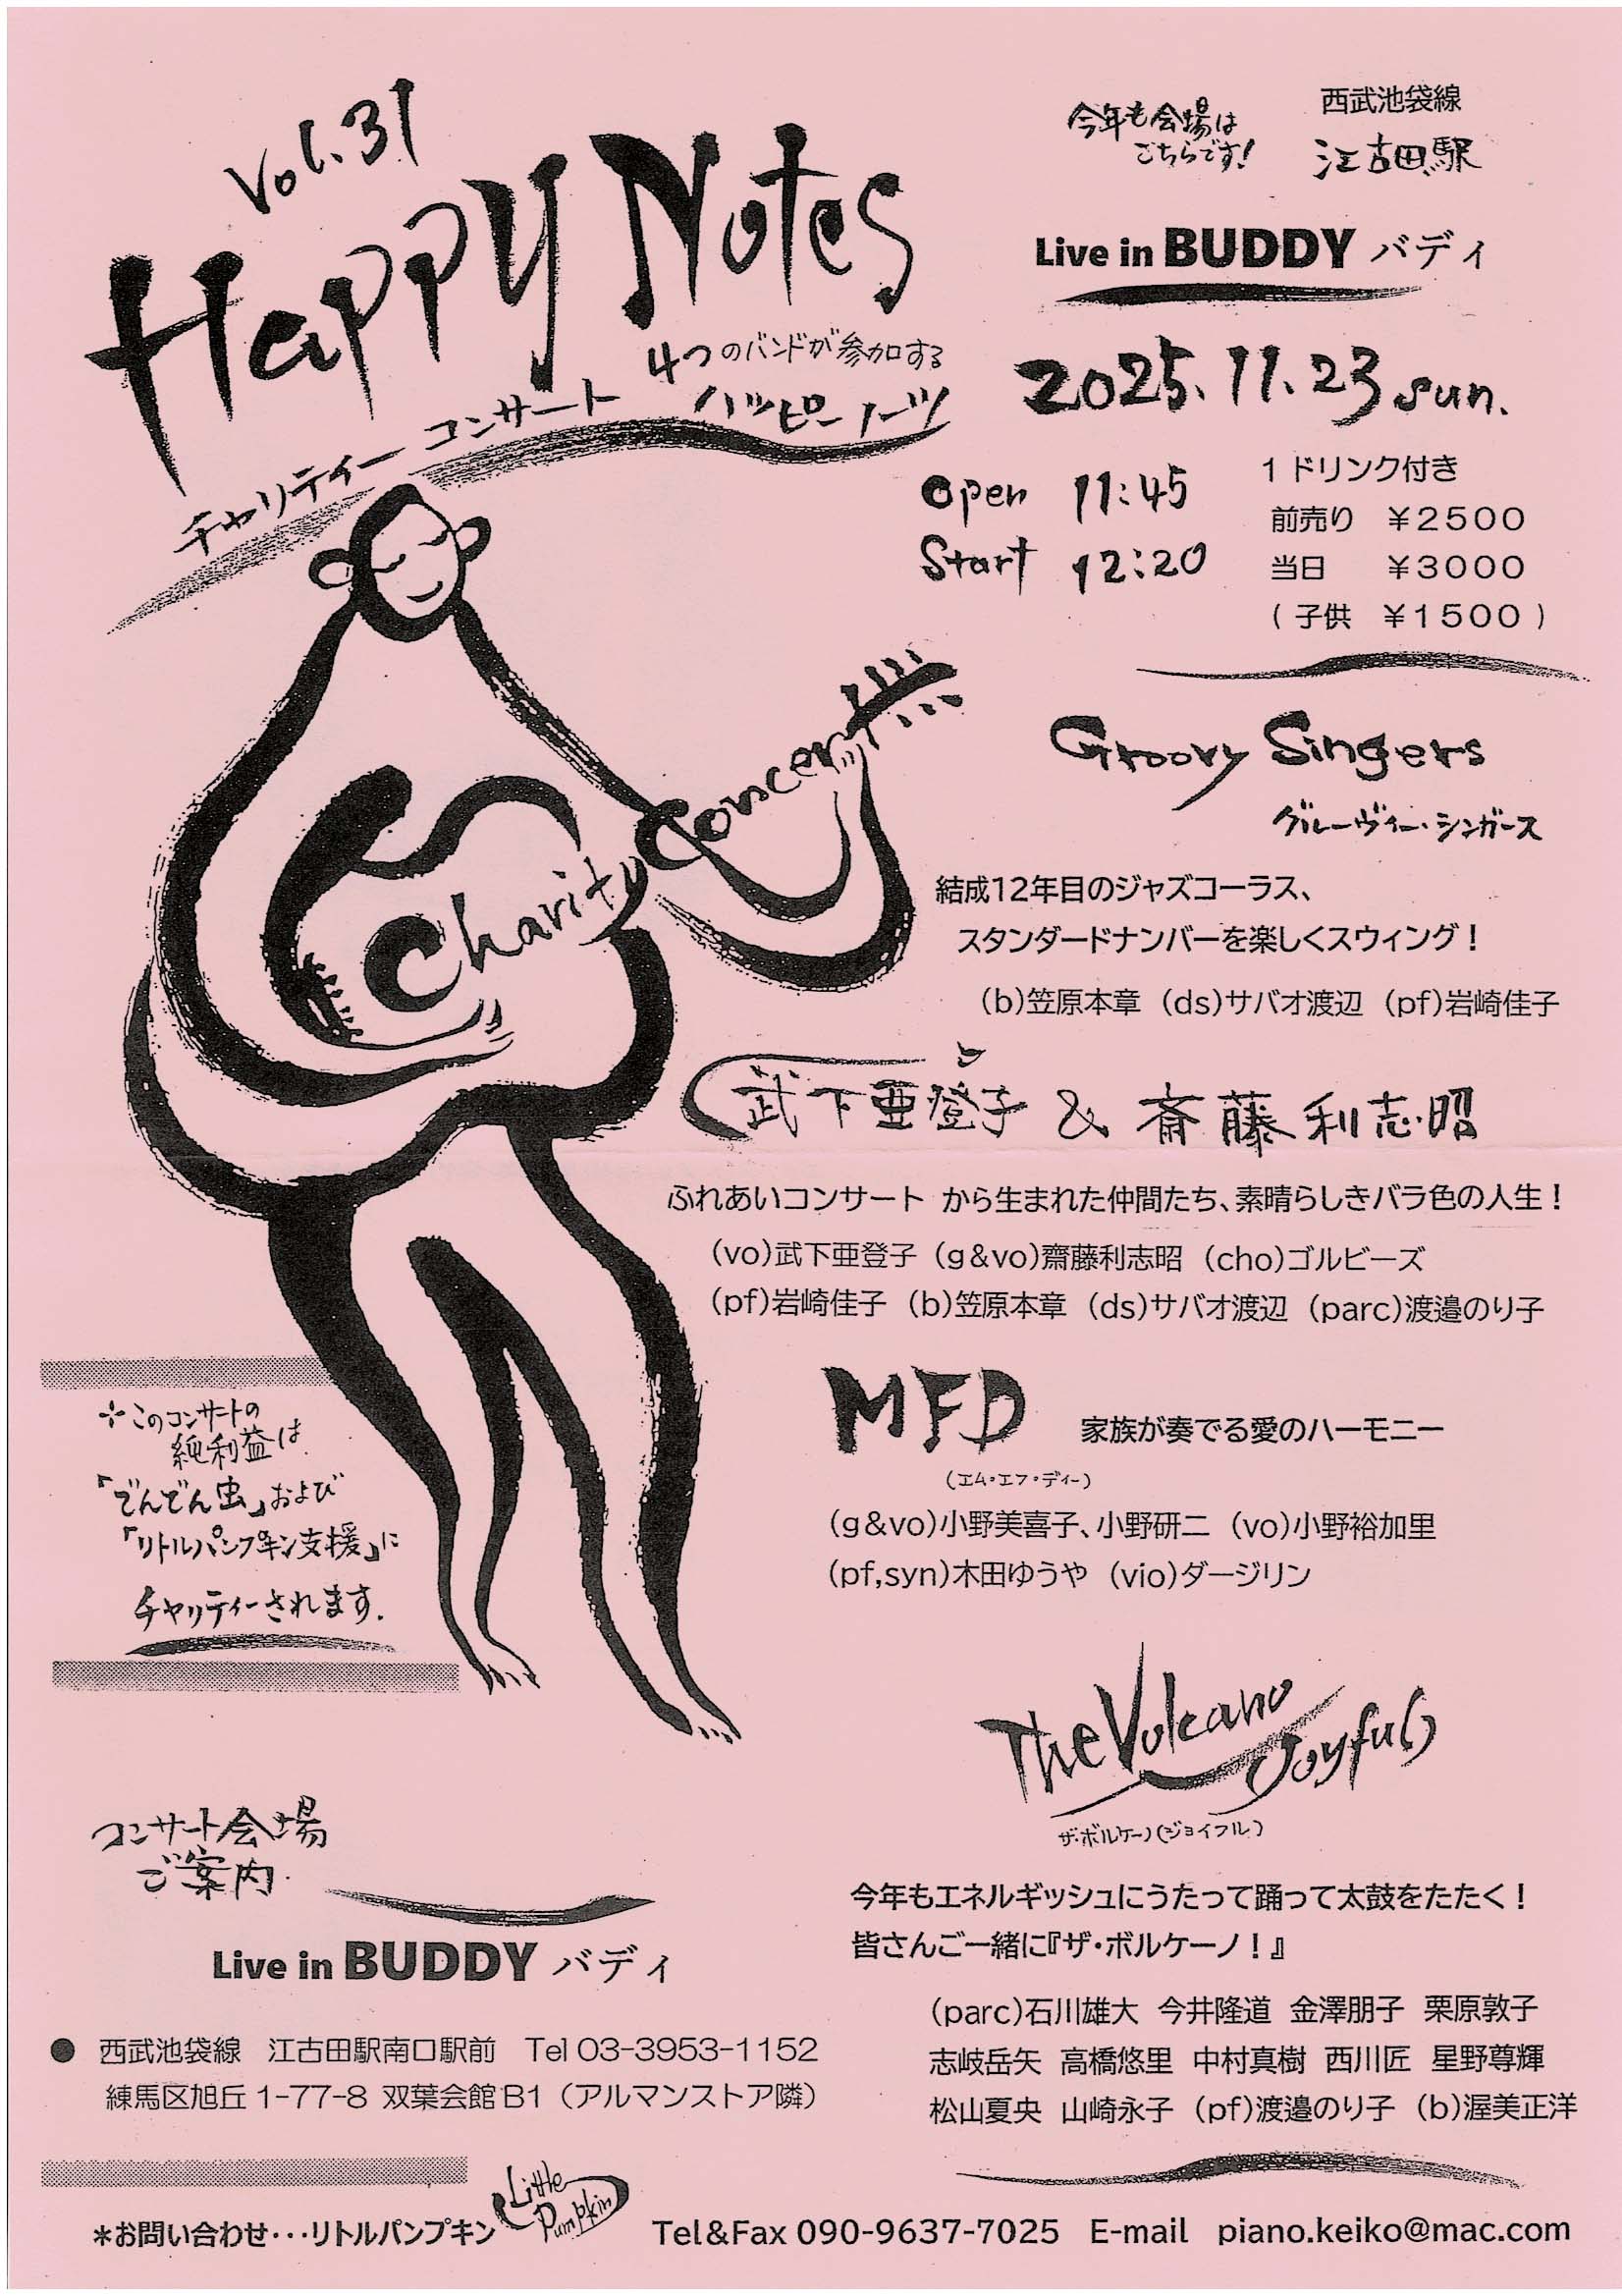 Vol.31
Happy Notes
チャリティー コンサート
4つのバンドが参加する
ハッピーノーツ
今年も会場は
こちらです!
西武池袋線
江古田駅
Live in BUDDY バディ
2025.11.23 sun.
Open 11:45
Start 12:20
1ドリンク付き
前売り ¥2500
当日 ¥3000
(子供 ¥1500)
Charity Concert
Groovy Singers
グルーヴィー・シンガース
結成12年目のジャズコーラス、
スタンダードナンバーを楽しくスウィング!
(b)笠原本章 (ds)サバオ渡辺 (pf)岩崎佳子
武下亜登子 & 斎藤利志昭
ふれあいコンサート から生まれた仲間たち、素晴らしきバラ色の人生!
(vo)武下亜登子 (g&vo)齋藤利志昭 (cho)ゴルビーズ
(pf)岩崎佳子 (b)笠原本章 (ds)サバオ渡辺 (parc)渡邉のり子
MFD 家族が奏でる愛のハーモニー
(エム・エフ・ディー)
(g&vo)小野美喜子、小野研二 (vo)小野裕加里
(pf,syn)木田ゆうや (vio)ダージリン
※このコンサートの
純利益は
「でんでん虫」および
「リトルパンプキン支援」に
チャリティーされます.
The Volcano Joyful
ザ・ボルケーノ(ジョイフル)
今年もエネルギッシュにうたって踊って太鼓をたたく!
皆さんご一緒に『ザ・ボルケーノ!』
(parc)石川雄大 今井隆道 金澤朋子 栗原敦子
志岐岳矢 高橋悠里 中村真樹 西川匠 星野尊輝
松山夏央 山崎永子 (pf)渡邉のり子 (b)渥美正洋
コンサート会場
ご案内
Live in BUDDY バディ
● 西武池袋線 江古田駅南口駅前 Tel 03-3953-1152
練馬区旭丘1-77-8 双葉会館B1(アルマンストア隣)
*お問い合わせ・・・リトルパンプキン Little Pumpkin Tel&Fax 090-9637-7025 E-mail piano.keiko@mac.com